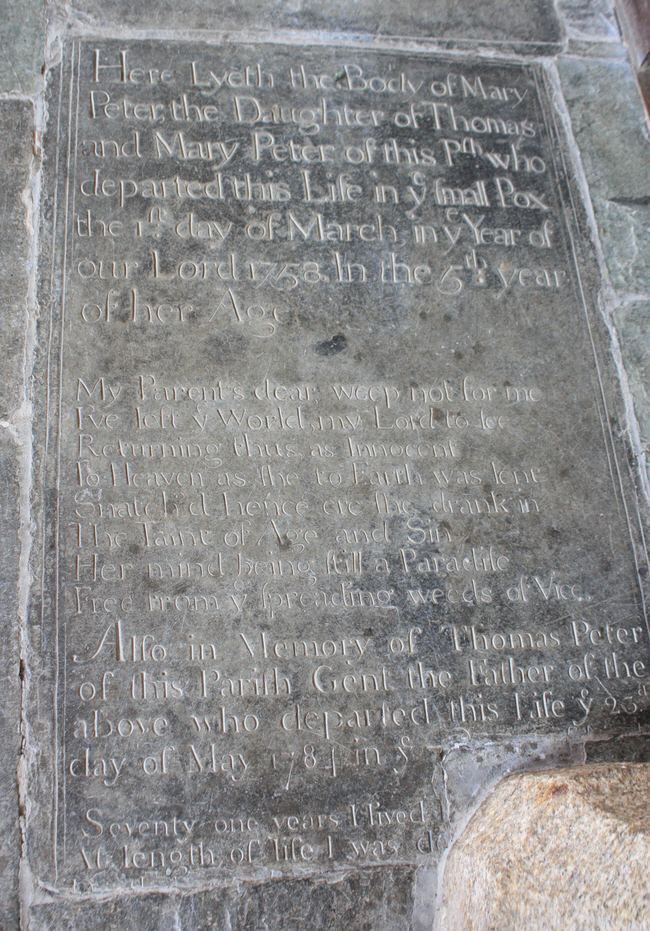 Here Lyeth the Body of Mary
Peter, the Daughter of Thomas
and Mary Peter of this Psh who
departed this Life in ye small Pox
the 1st day of March, in ye Year of
our Lord 1758. In the 5th year
of her Age
My Parents dear, weep not for me
I've left ye World, my Lord to see
Returning thus, as Innocent
To Heaven as she to Earth was lent
Snatch'd hence ere she drank in
The Taint of Age and Sin
Her mind being still a Paradise
Free from ye spreading weeds of Vice.
Also in Memory of Thomas Peter
of this Parish Gent the Father of the
above who departed this Life ye 23rd
day of May 1784 in ye
Seventy one years I lived
At length of life I was